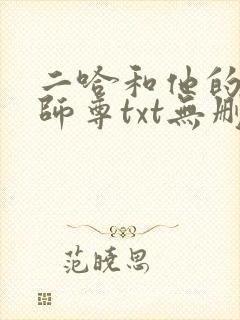 二哈和他的
師尊txt無刪
范曉思